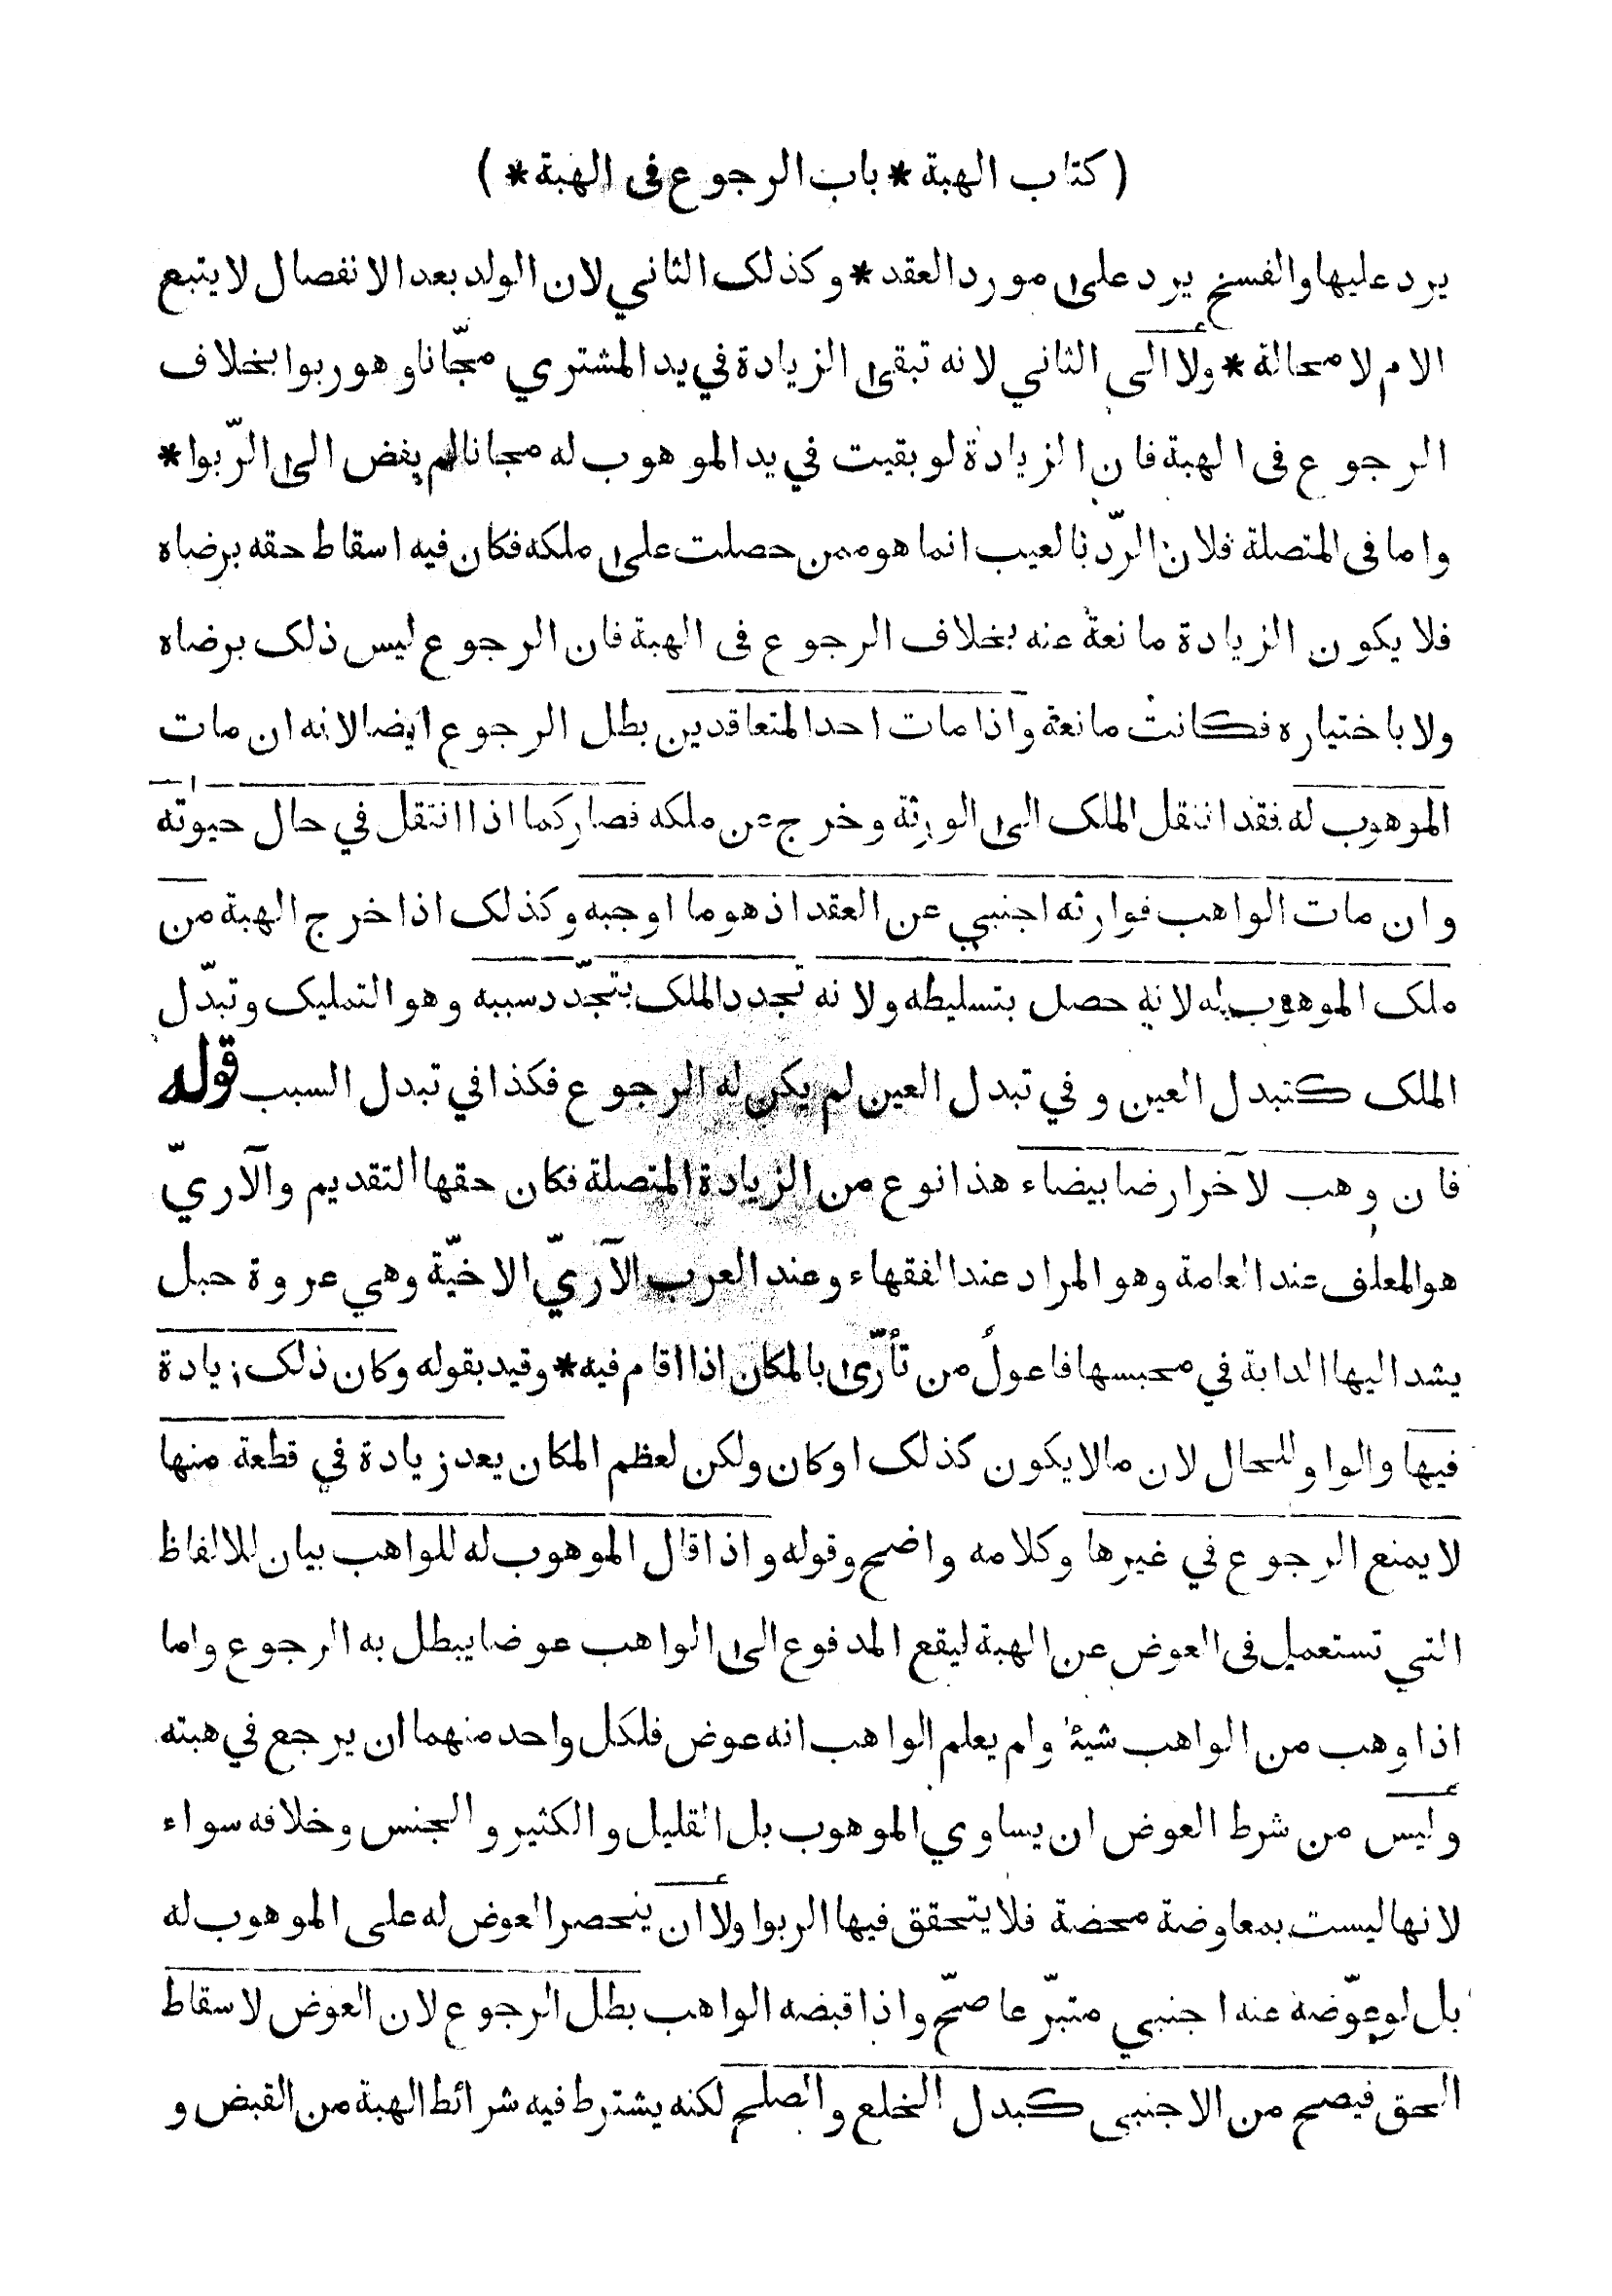 ( كتاب الهبة * باب الرجوع فى الهبة * )
يرد عليها والفسخ يرد على مورد العقد * وكذلك الثاني لان الولد بعد الانفصال لايتبع
الام لا محالة * ولا الى الثاني لانه تبقى الزيادة في يد المشتري مجّانا وهو ربوا بخلاف
الرجوع فى الهبة فان الزيادة لو بقيت في يد الموهوب له مجانا لم يفض الى الرّبوا *
واما فى المتصلة فلان الرّد بالعيب انما هو ممن حصلت على ملكه فكان فيه اسقاط حقه برضاه
فلا يكون الزيادة مانعة عنه بخلاف الرجوع فى الهبة فان الرجوع ليس ذلك برضاه
ولا باختياره فكانت مانعة واذا مات احد المتعاقدين بطل الرجوع ايضا لانه ان مات
الموهوب له فقد انتقل الملك الى الورثة وخرج عن ملكه فصار كما اذا انتقل في حال حيوته
وان مات الواهب فوارثه اجنبي عن العقد اذ هو ما اوجبه وكذلك اذا خرج الهبة من
ملك الموهوب له لانه حصل بتسليطه ولانه تجدد الملك بتجدّد سببه وهو التمليك وتبدّل
الملك كتبدل العين وفي تبدل العين لم يكن له الرجوع فكذا في تبدل السبب قوله
فان وهب لآخر ارضا بيضاء هذا نوع من الزيادة المتصلة فكان حقها التقديم والآريّ
هو المعلف عند العامة وهو المراد عند الفقهاء وعند العرب الآريّ الاخيّة وهي عروة حبل
يشد اليها الدابة في محبسها فاعول من تأرّى بالمكان اذا اقام فيه * وقيد بقوله وكان ذلك زيادة
فيها والواو للحال لان مالا يكون كذلك او كان ولكن لعظم المكان يعد زيادة في قطعة منها
لا يمنع الرجوع في غيرها وكلامه واضح وقوله واذا قال الموهوب له للواهب بيان للالفاظ
التي تستعمل فى العوض عن الهبة ليقع المدفوع الى الواهب عوضا يبطل به الرجوع واما
اذا وهب من الواهب شيئا ولم يعلم الواهب انه عوض فلكل واحد منهما ان يرجع في هبته
وليس من شرط العوض ان يساوي الموهوب بل القليل والكثير والجنس وخلافه سواء
لانها ليست بمعاوضة محضة فلا يتحقق فيها الربوا ولا ان ينحصر العوض له على الموهوب له
بل لو عوّضه عنه اجنبي متبرّعا صحّ واذا قبضه الواهب بطل الرجوع لان العوض لاسقاط
الحق فيصح من الاجنبى كبدل الخلع والصلح لكنه يشترط فيه شرائط الهبة من القبض و